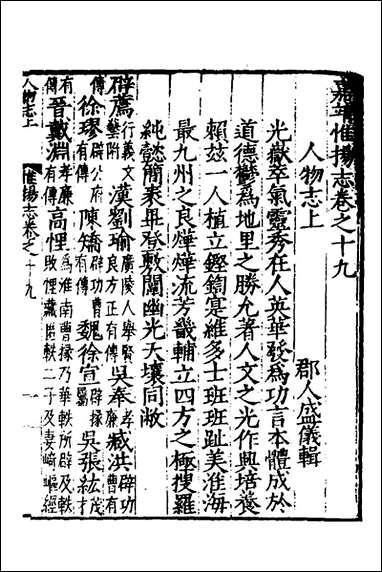 嘉靖惟揚志卷之十九
人物志上 郡人盛儀輯
光嶽萃氣靈秀在人英華發為功言本體成於
道德鬱為地里之勝允著人文之光作興培養
賴茲一人植立鏗鍧寔維多士班班趾美淮海
最九州之良燁燁流芳畿輔立四方之極搜羅
純懿簡來年登敷闡幽光天壤同敝
辟薦行義文學附漢劉瑜廣陵人舉賢良方正有傳吳奉孝廉臧洪辟功曹有
傳徐璆辟公府有傳陳矯辟功曹有傳魏徐宣辟掾有傳吳張紘茂
有傳晉戴淵孝廉有傳高悝為淮南曹掾乃華軼所辟及軼敗悝藏匿軼二子及妻崎嶇經
人物志上 惟揚志卷之十九 一